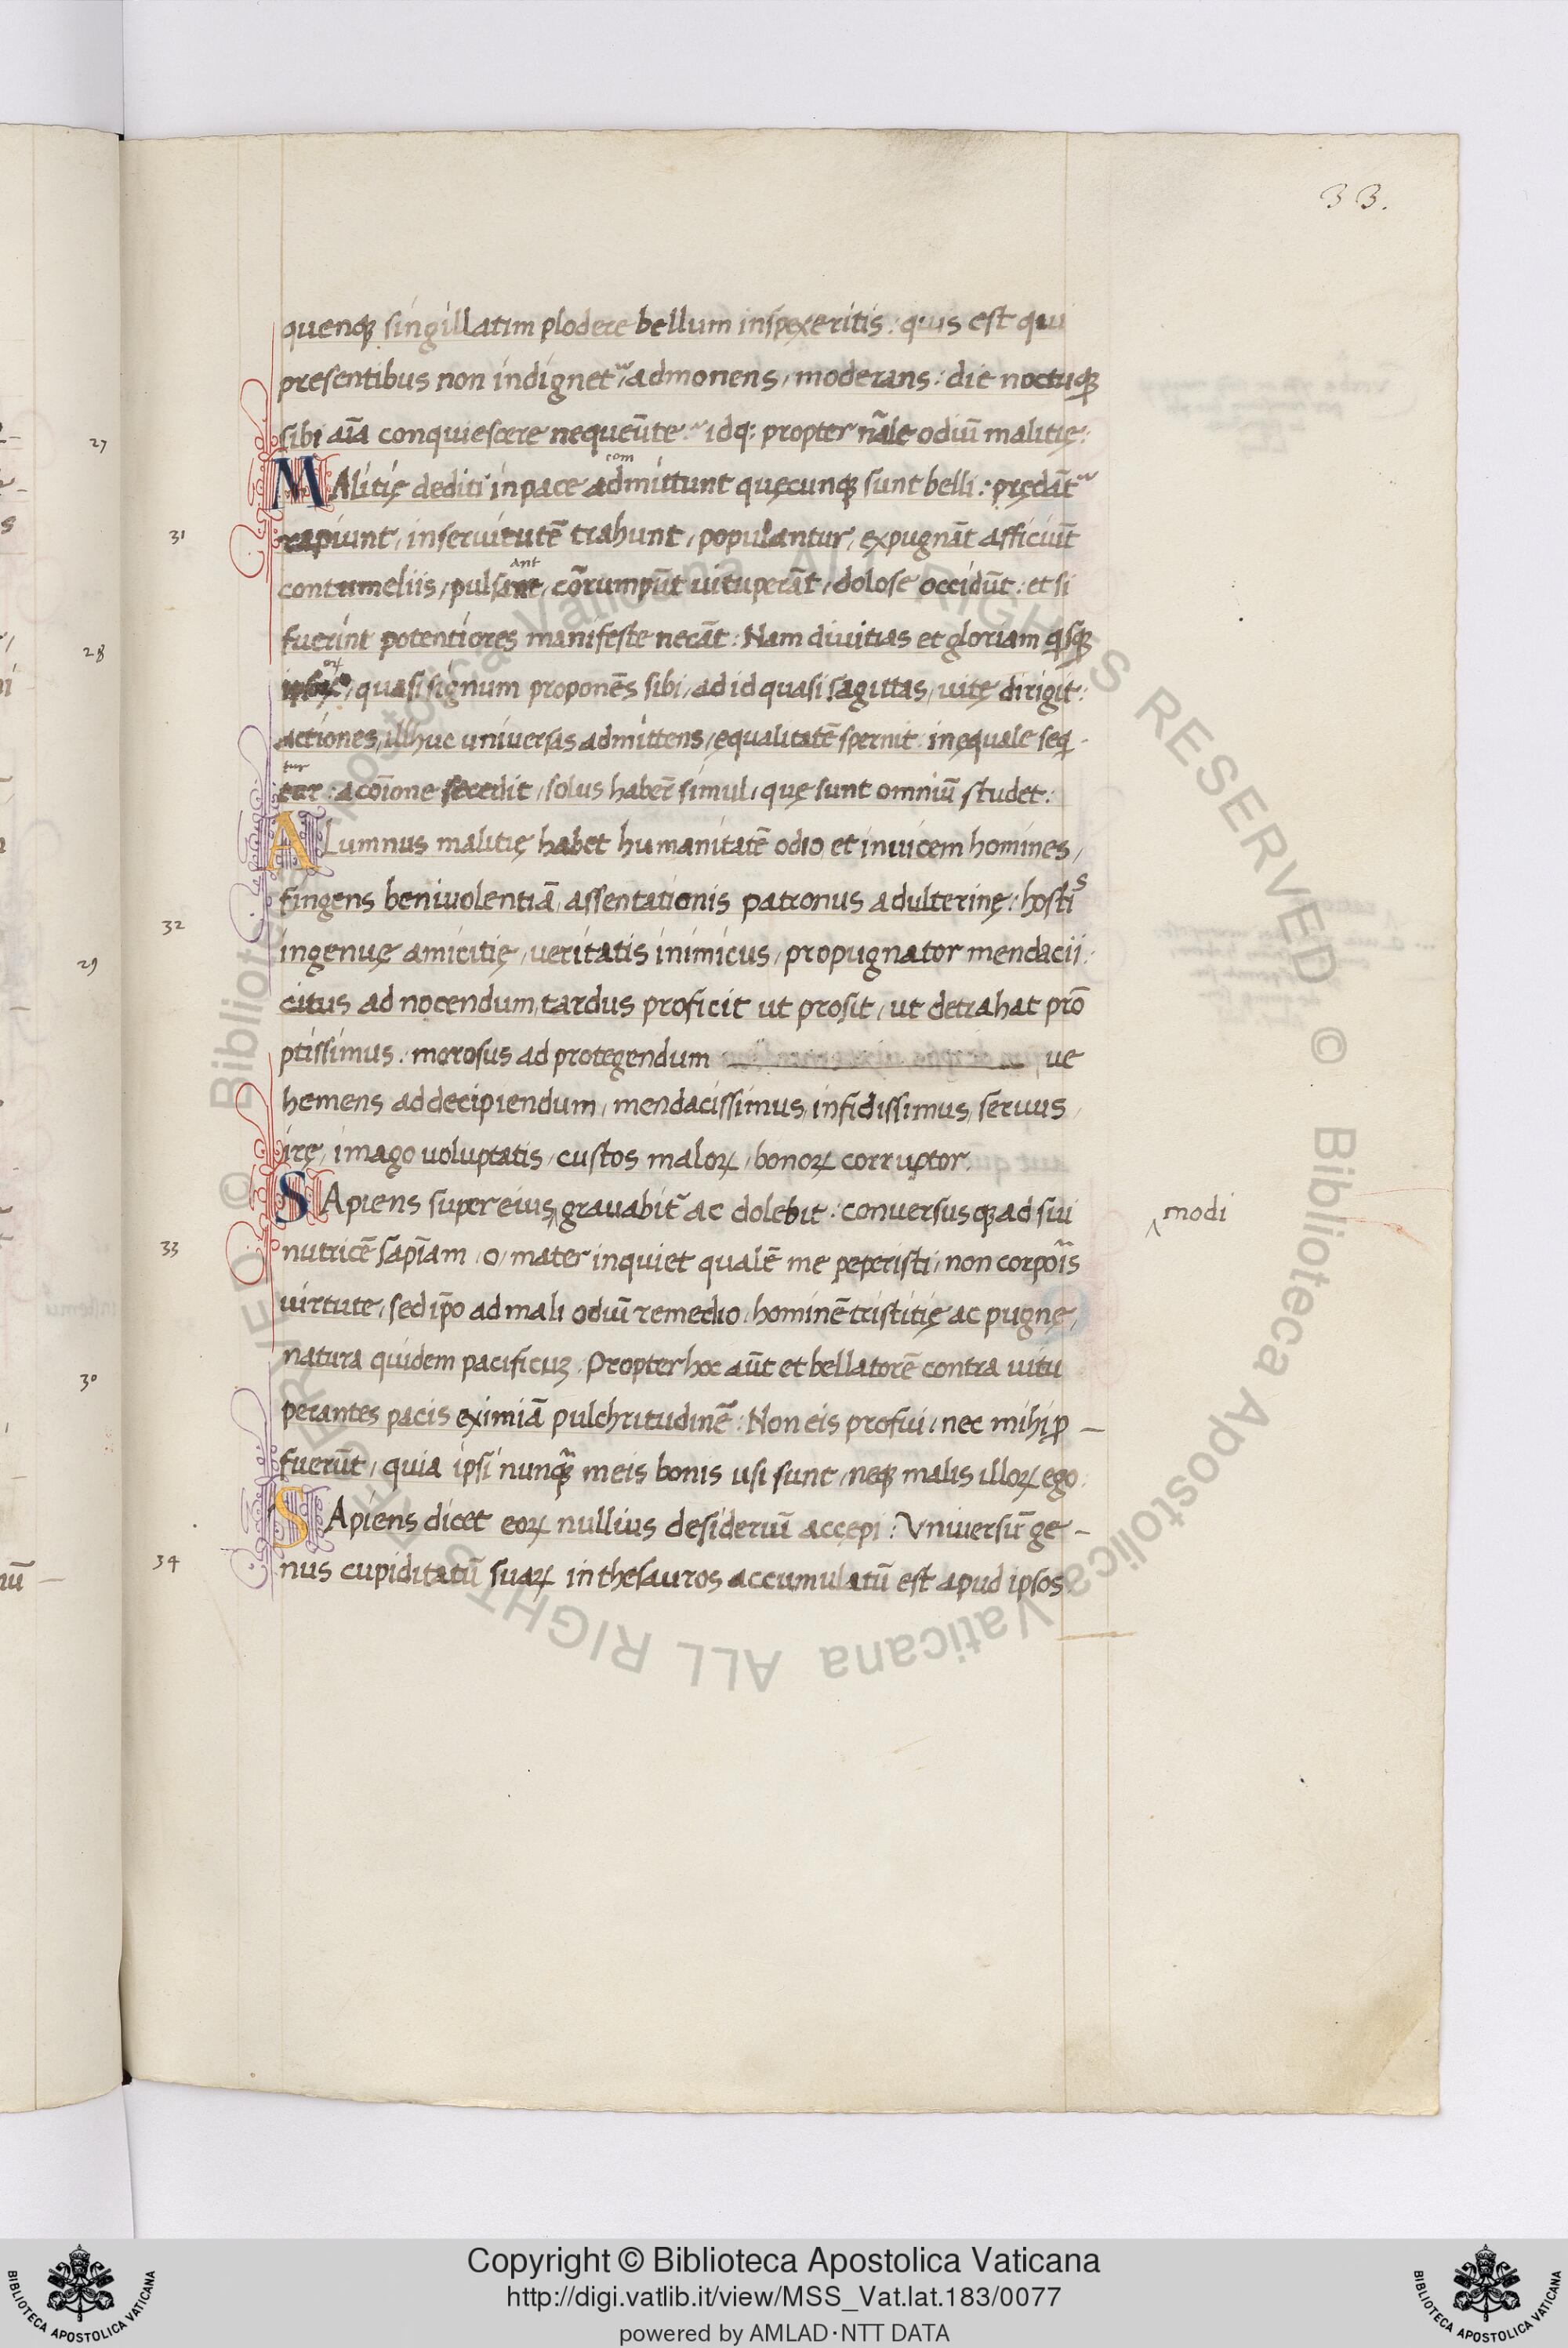 33.
quenqꝫ singillatim plodere bellum inspexeritis: quis est qui
presentibus non indignet᷑, admonens, moderans: die noctuqꝫ
sibi aı̄a conquiescere nequeūte: idq: propter nāle odiū malitię:
27
MAlitię dediti in pace admittunt quęcunqꝫ sunt belli: prędāt᷑
com
rapiunt, in seruitutē trahunt, populantur, expugnāt afficiūt
31
contumeliis, pulsant, cōrumpūt uituperāt, dolose occidūt: et si
ant
fuerint potentiores manifeste necāt: Nam diuitias et gloriam qsqꝫ
28
quasi signum proponēs sibi, ad id quasi sagittas, uitę dirigit:
actiones, illhuc uniuersas admittens, ęqualitatē spernit: inęquale seq̄
tur
tur: a cōıone secedit, solus haber̄ simul, quę sunt omniū studet:
ALumnus malitię habet humanitatē odio, et inuicem homines,
fingens beniuolentiā, assentationis patronus adulterinę: hostis
32
ingenuę amicitię, ueritatis inimicus, propugnator mendacii:
29
citus ad nocendum, tardus proficit ut prosit, ut detrahat prō
ptissimus: morosus ad protegendum ue
hemens ad decipiendum, mendacissimus, infidissimus, seruus,
irę, imago uoluptatis, custos maloꝝ, bonoꝝ corruptor.
SApiens super eius gravabit᷑ ac dolebit: conuersusqꝫ ad sui
modi
33
nutricē sapı̄am, o, mater inquiet qualē me peperisti, non corpoı̄s
uirtute, sed ip̄o ad mali odiū remedio, hominē tristitię ac pugnę,
natura quidem pacificuꝫ. Propter hoc aūt et bellatorē contra uitu
30
perantes pacis eximiā pulchritudinē: Non eis profui, nec mihi ꝓ –
fuerūt, quia ipsi nunqꝫ̄ meis bonis usi sunt, neqꝫ malis illoꝝ ego:
SApiens dicet eoꝝ nullius desideriū accepi: Vniuersū ge –
34
nus cupiditatū suaꝝ in thesauros accumulatū est apud ipsos.
Copyright © Biblioteca Apostolica Vaticana
http://digi.vatlib.it/view/MSS_Vat.lat.183/0077
powered by AMLAD·NTT DATA
BIBLIOTECA APOSTOLICA VATICANA
BIBLIOTECA APOSTOLICA VATICANA
© Biblioteca Apostolica Vaticana ALL RIGHTS RESERVED © Biblioteca Apostolica Vaticana ALL RIGHTS RESERVED